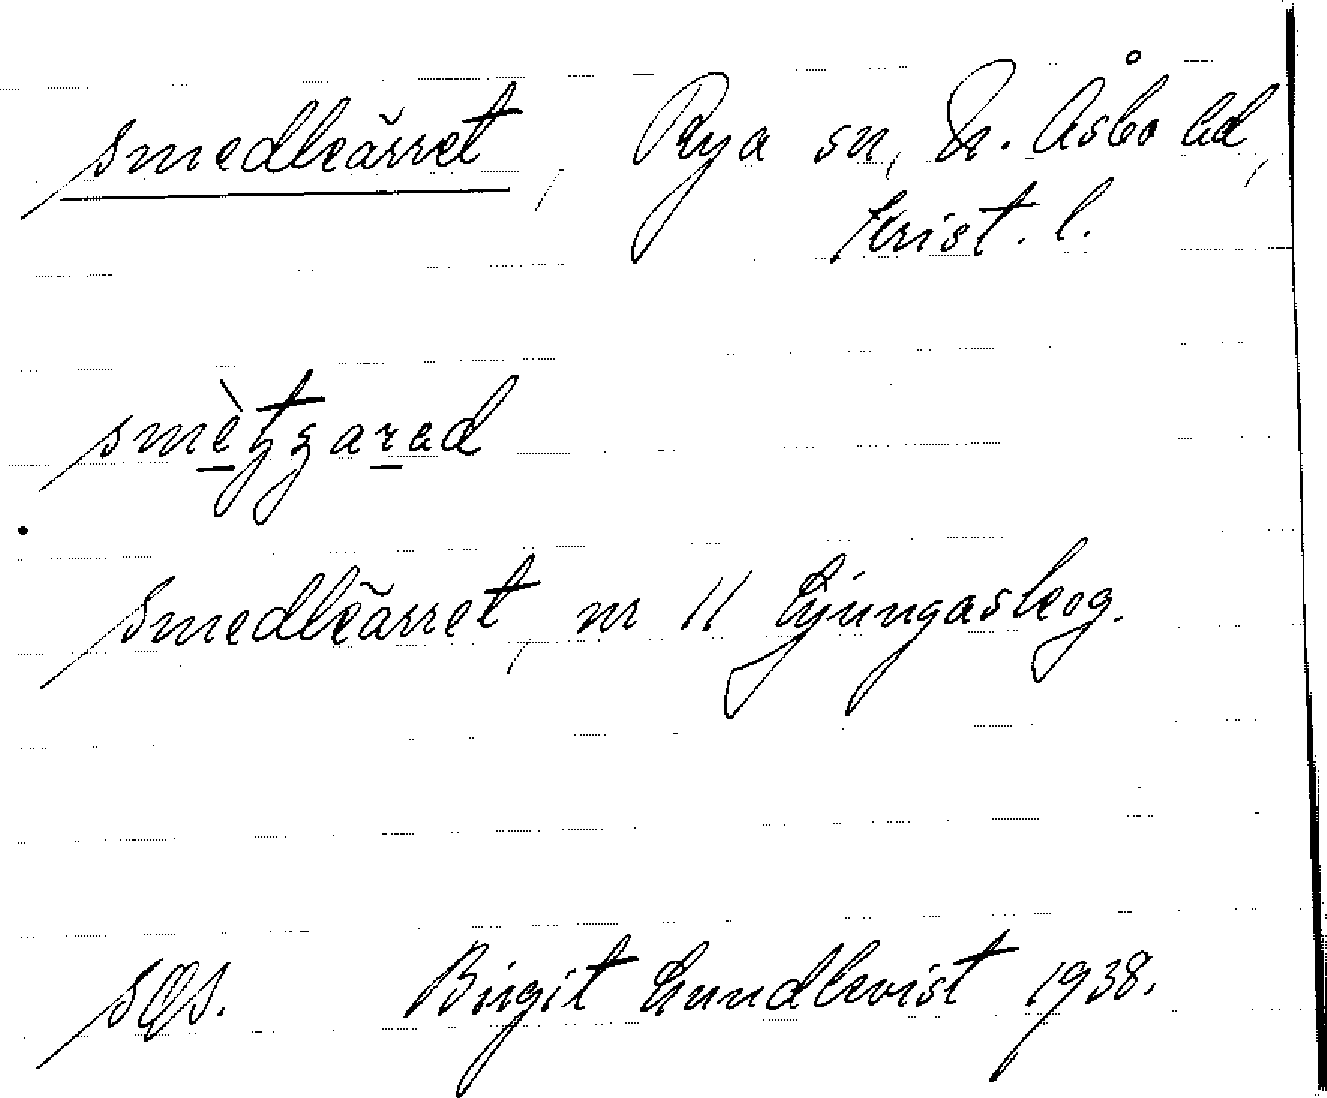 smedkärret, Rya sn, N. Åsbo hd,
Krist. l.
Smedkärret, nr 11 Ljungaskog.
Birgit Lundkvist 1938.